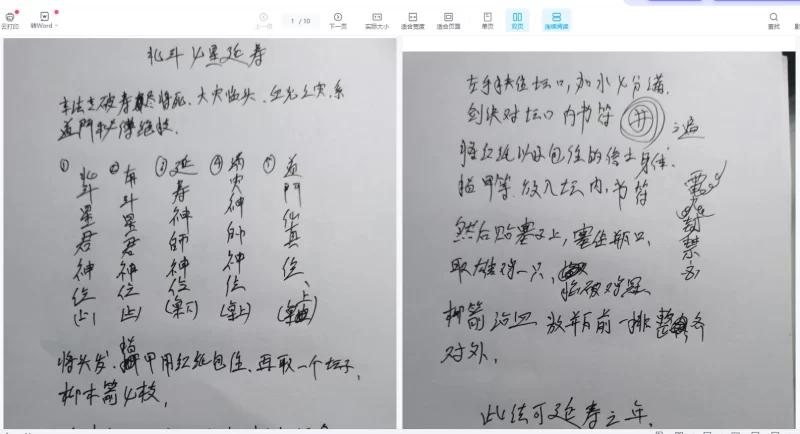 云打印
转Word
上一页
1 / 10
下一页
实际大小
适合宽度
适合页面
单页
双页
连续阅读
查找
北斗七星延寿
本法主破寿尽将死、大灾临头、血光之灾、系
道門秘传绝技.
① 北斗星君神位(上)
② 南斗星君神位(上)
③ 延寿神師神位(桌下)
④ 消灾神師神位(桌上)
⑤ 道門仙真位(桌上)
将头发、指甲用红纸包住、再取一个坛子,
柳木箭七枝,
左手持住坛口,加水七分满.
剑诀对坛口内书符 井 三遍
将红纸以及包住的信士身体
指甲等放入坛内,书符
封禁
然后贴塞子上,塞住瓶口.
取雄鸡一只,掐破鸡冠
柳箭沾血放瓶前一排整齐
对外.
此法可延寿三年.